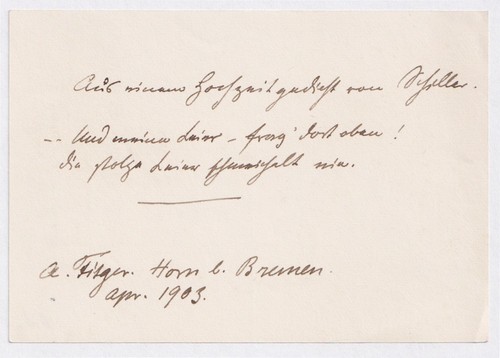 Aus einem Hochzeitgedicht von Schiller.
-- Und meine Leier – frag' dort oben!
die stolze Leier schmeichelt nie.
A. Fitger. Horn b. Bremen.
Apr. 1903.